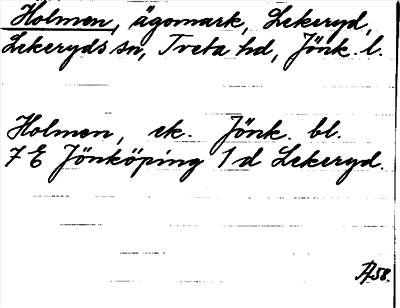 Holmen, ägomark, Lekeryd,
Lekeryds sn, Tveta hd, Jönk. l.
Holmen, ek. Jönk. bl.
7 E Jönköping 1 d Lekeryd.